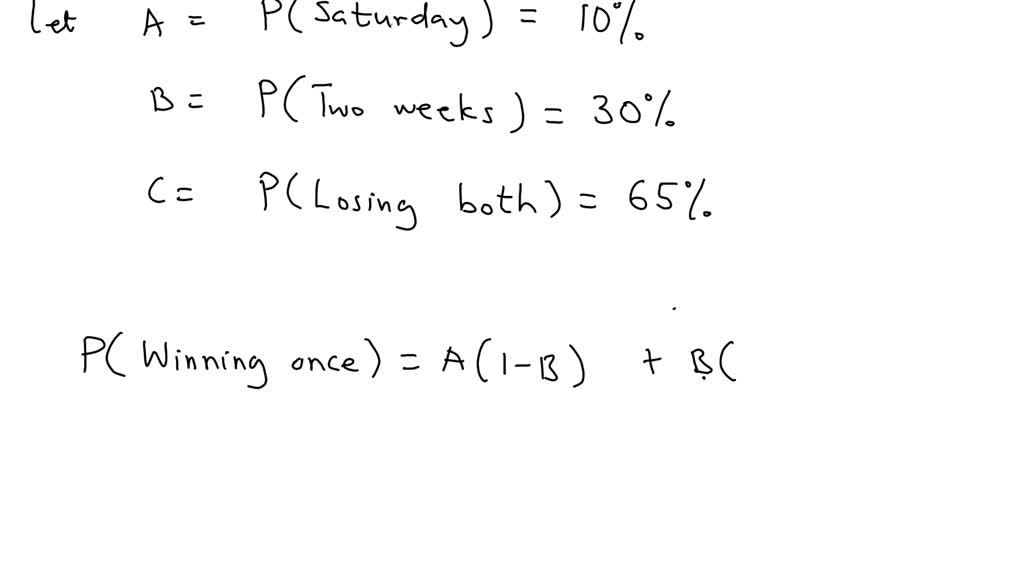 let A = P(Saturday) = 10%
B = P(Two weeks) = 30%
C = P(Losing both) = 65%
P(Winning once) = A(1-B) + B(